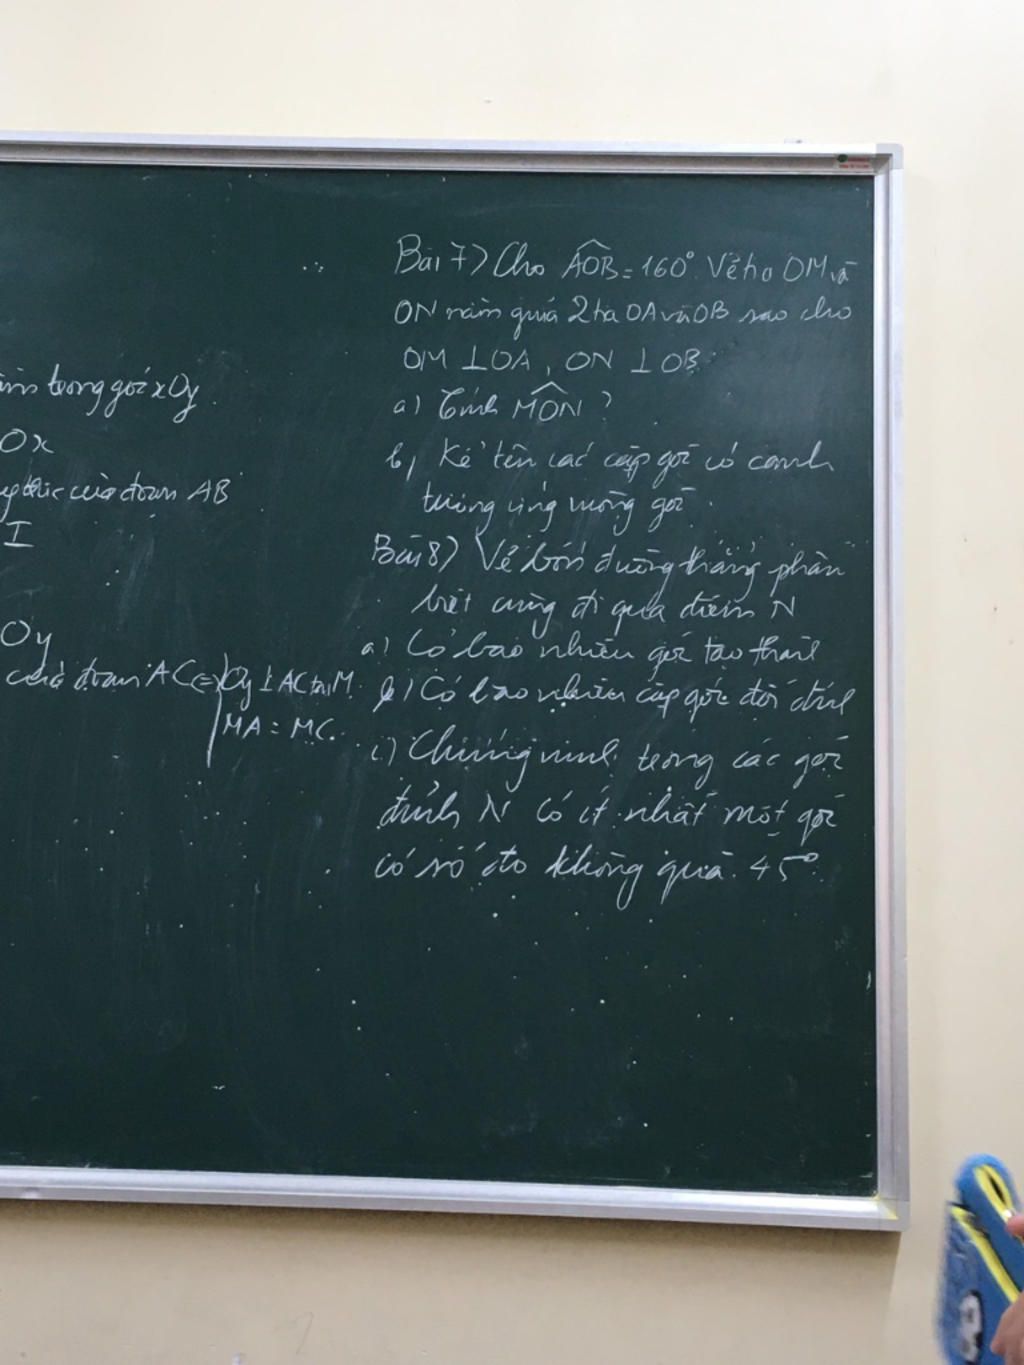 trong góc xOy.
Ox
của đoạn AB
I
Oy
của đoạn AC <=> Oy ⊥ AC tại M
MA = MC.
Bài 7) Cho AOB = 160° Vẽ tia OM và
ON nằm giữa 2 tia OA và OB sao cho
OM ⊥ OA, ON ⊥ OB.
a) Tính MON ?
b) Kể tên các cặp góc có cạnh
tương ứng vuông góc
Bài 8) Vẽ bốn đường thẳng phân
biệt cùng đi qua điểm N
a) Có bao nhiêu góc tạo thành
b) Có bao nhiêu cặp góc đối đỉnh
c) Chứng minh trong các góc
đỉnh N có ít nhất một góc
có số đo không quá 45°.